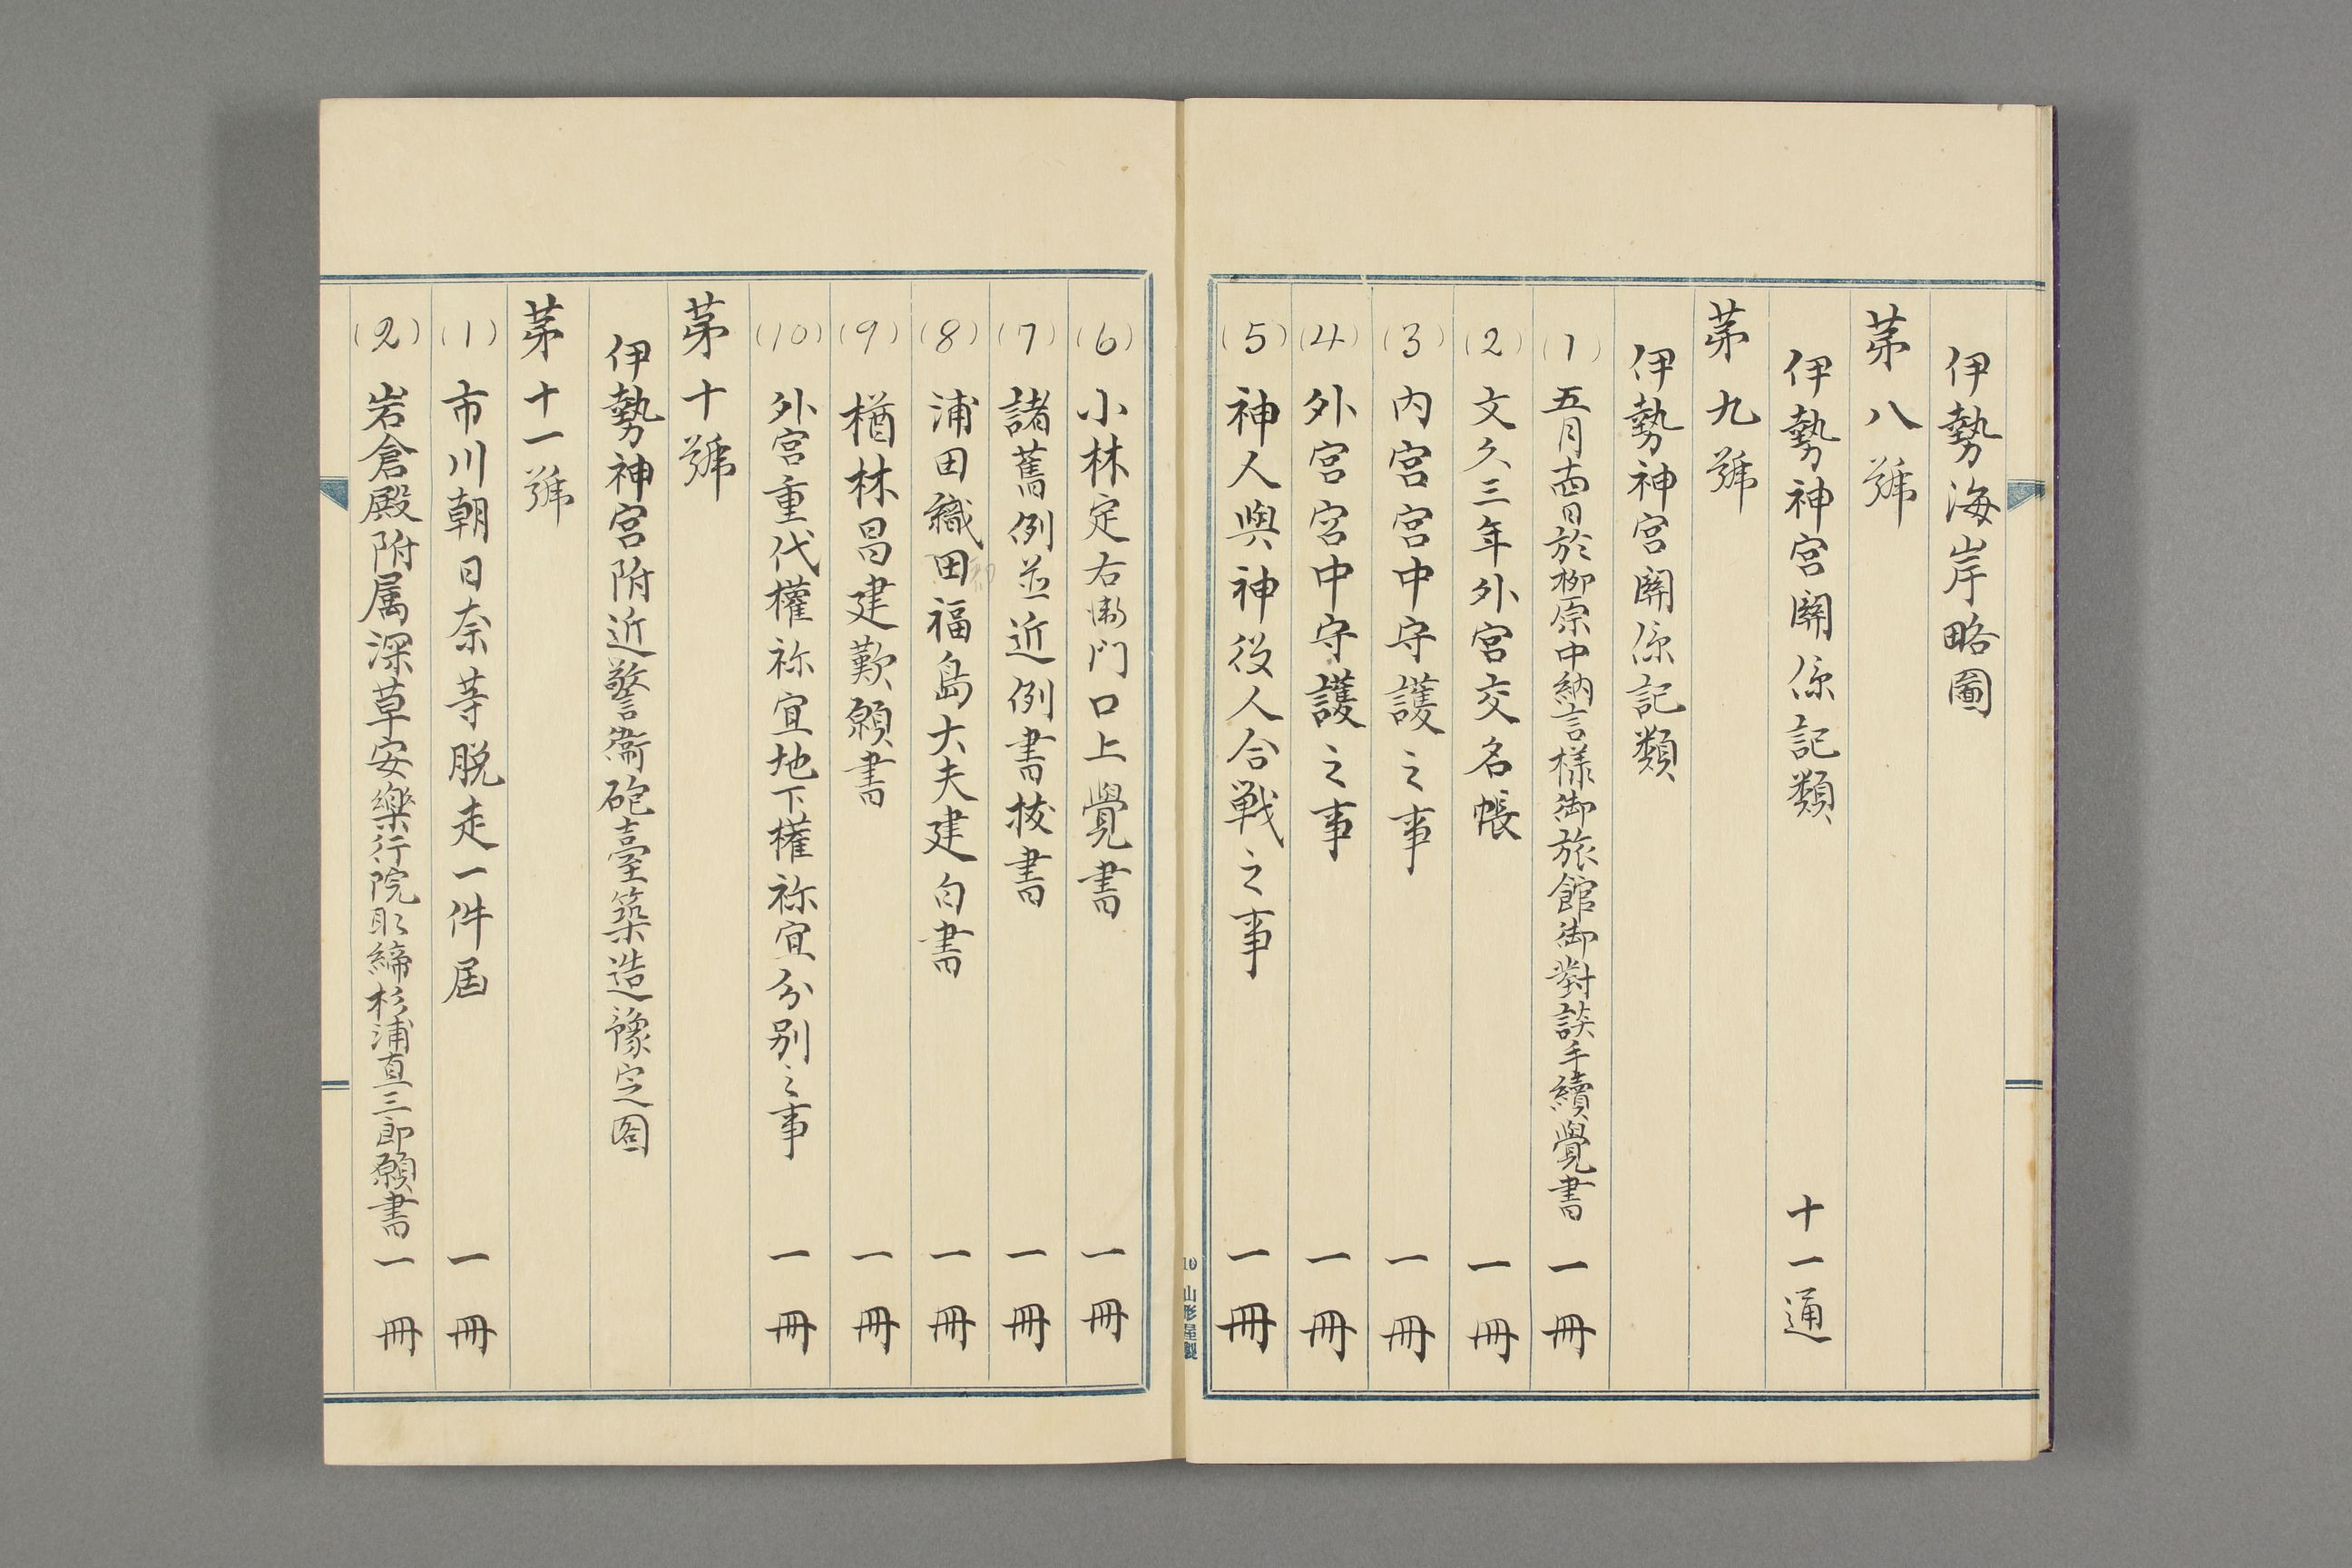 伊勢海岸略圖
第八號
伊勢神宮關係記類 十一通
第九號
伊勢神宮關係記類
(1) 五月十四日於柳原中納言様御旅館御對談手續覺書 一冊
(2) 文久三年外宮交名帳 一冊
(3) 内宮宮中守護之事 一冊
(4) 外宮宮中守護之事 一冊
(5) 神人與神役人合戦之事 一冊
10 山形屋製
(6) 小林定右衛門口上覺書 一冊
(7) 諸舊例並近例書抜書 一冊
(8) 浦田織田福島大夫建白書 一冊
(9) 楢林昌建歎願書 一冊
(10) 外宮重代權祢宜地下權祢宜分別之事 一冊
第十號
伊勢神宮附近警衞砲臺築造豫定图
第十一號
(1) 市川朝日奈等脱走一件届 一冊
(2) 岩倉殿附属深草安樂行院取締杉浦直三郎願書 一冊